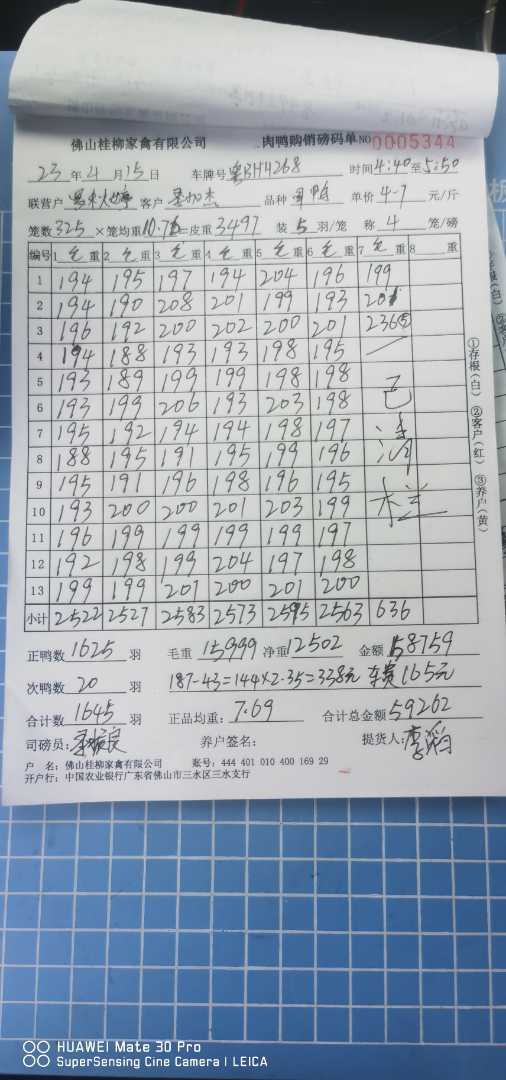 佛山桂柳家禽有限公司 肉鸭购销磅码单 NO 0005344
23 年 4 月 15 日 车牌号 粤BH4268 时间 4:40 至 5:50
联营户 客户 品种 单价 4.7 元/斤
笼数 325 ×笼均重 10.76 =皮重 3497 装 5 羽/笼 称 4 笼/磅
编号 1 毛 重 2 毛 重 3 毛 重 4 毛 重 5 毛 重 6 毛 重 7 毛 重 8 重
1 194 195 197 194 204 196 199
2 194 190 208 201 199 193 201
3 196 192 200 202 200 201 236⑤
4 194 188 193 193 198 195
5 193 189 199 199 198 198
6 193 199 206 193 203 198
7 195 192 194 194 198 197
8 188 195 191 195 199 196
9 195 191 196 198 196 195
10 193 200 200 201 203 199
11 196 199 199 199 199 197
12 192 198 199 204 197 198
13 199 199 201 200 201 200
小计 2522 2527 2583 2573 2595 2563 636
①存根(白) ②客户(红) ③养户(黄)
正鸭数 1625 羽 毛重 15999 净重 12502 金额 58759
次鸭数 20 羽 187-43=144×2.35=338元 车费165元
合计数 1645 羽 正品均重: 7.69 合计总金额 59262
司磅员: 养户签名: 提货人:
户 名: 佛山桂柳家禽有限公司 账号: 444 401 010 400 169 29
开户行: 中国农业银行广东省佛山市三水区三水支行
HUAWEI Mate 30 Pro
SuperSensing Cine Camera | LEICA